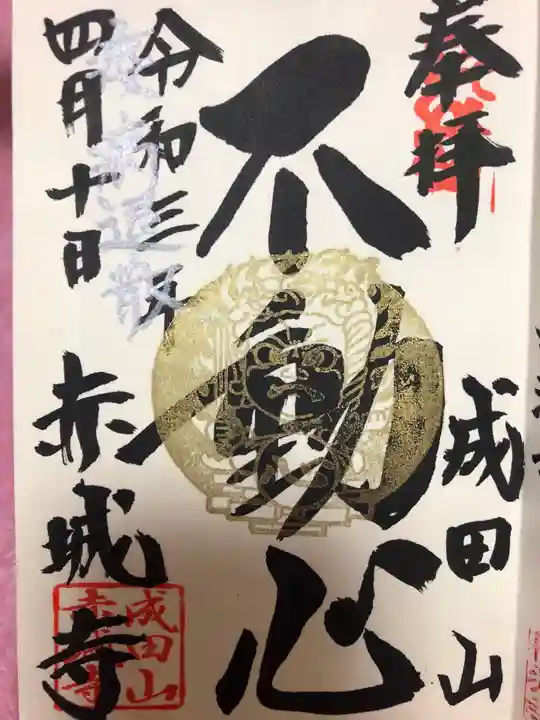 奉拝
成田山
不動心
令和三年
四月十日
疫病退散
赤城寺
成田山
赤城寺